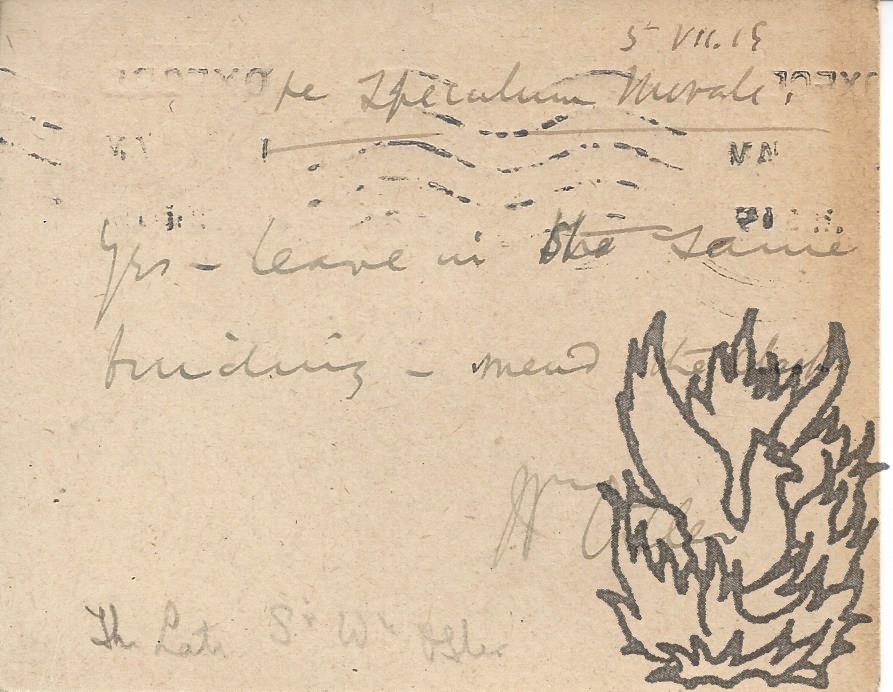 5 VII.19
re Speculum Morale.
Yes – leave in the same
binding – mend the
Wm Osler
The Late Sr Wm Osler